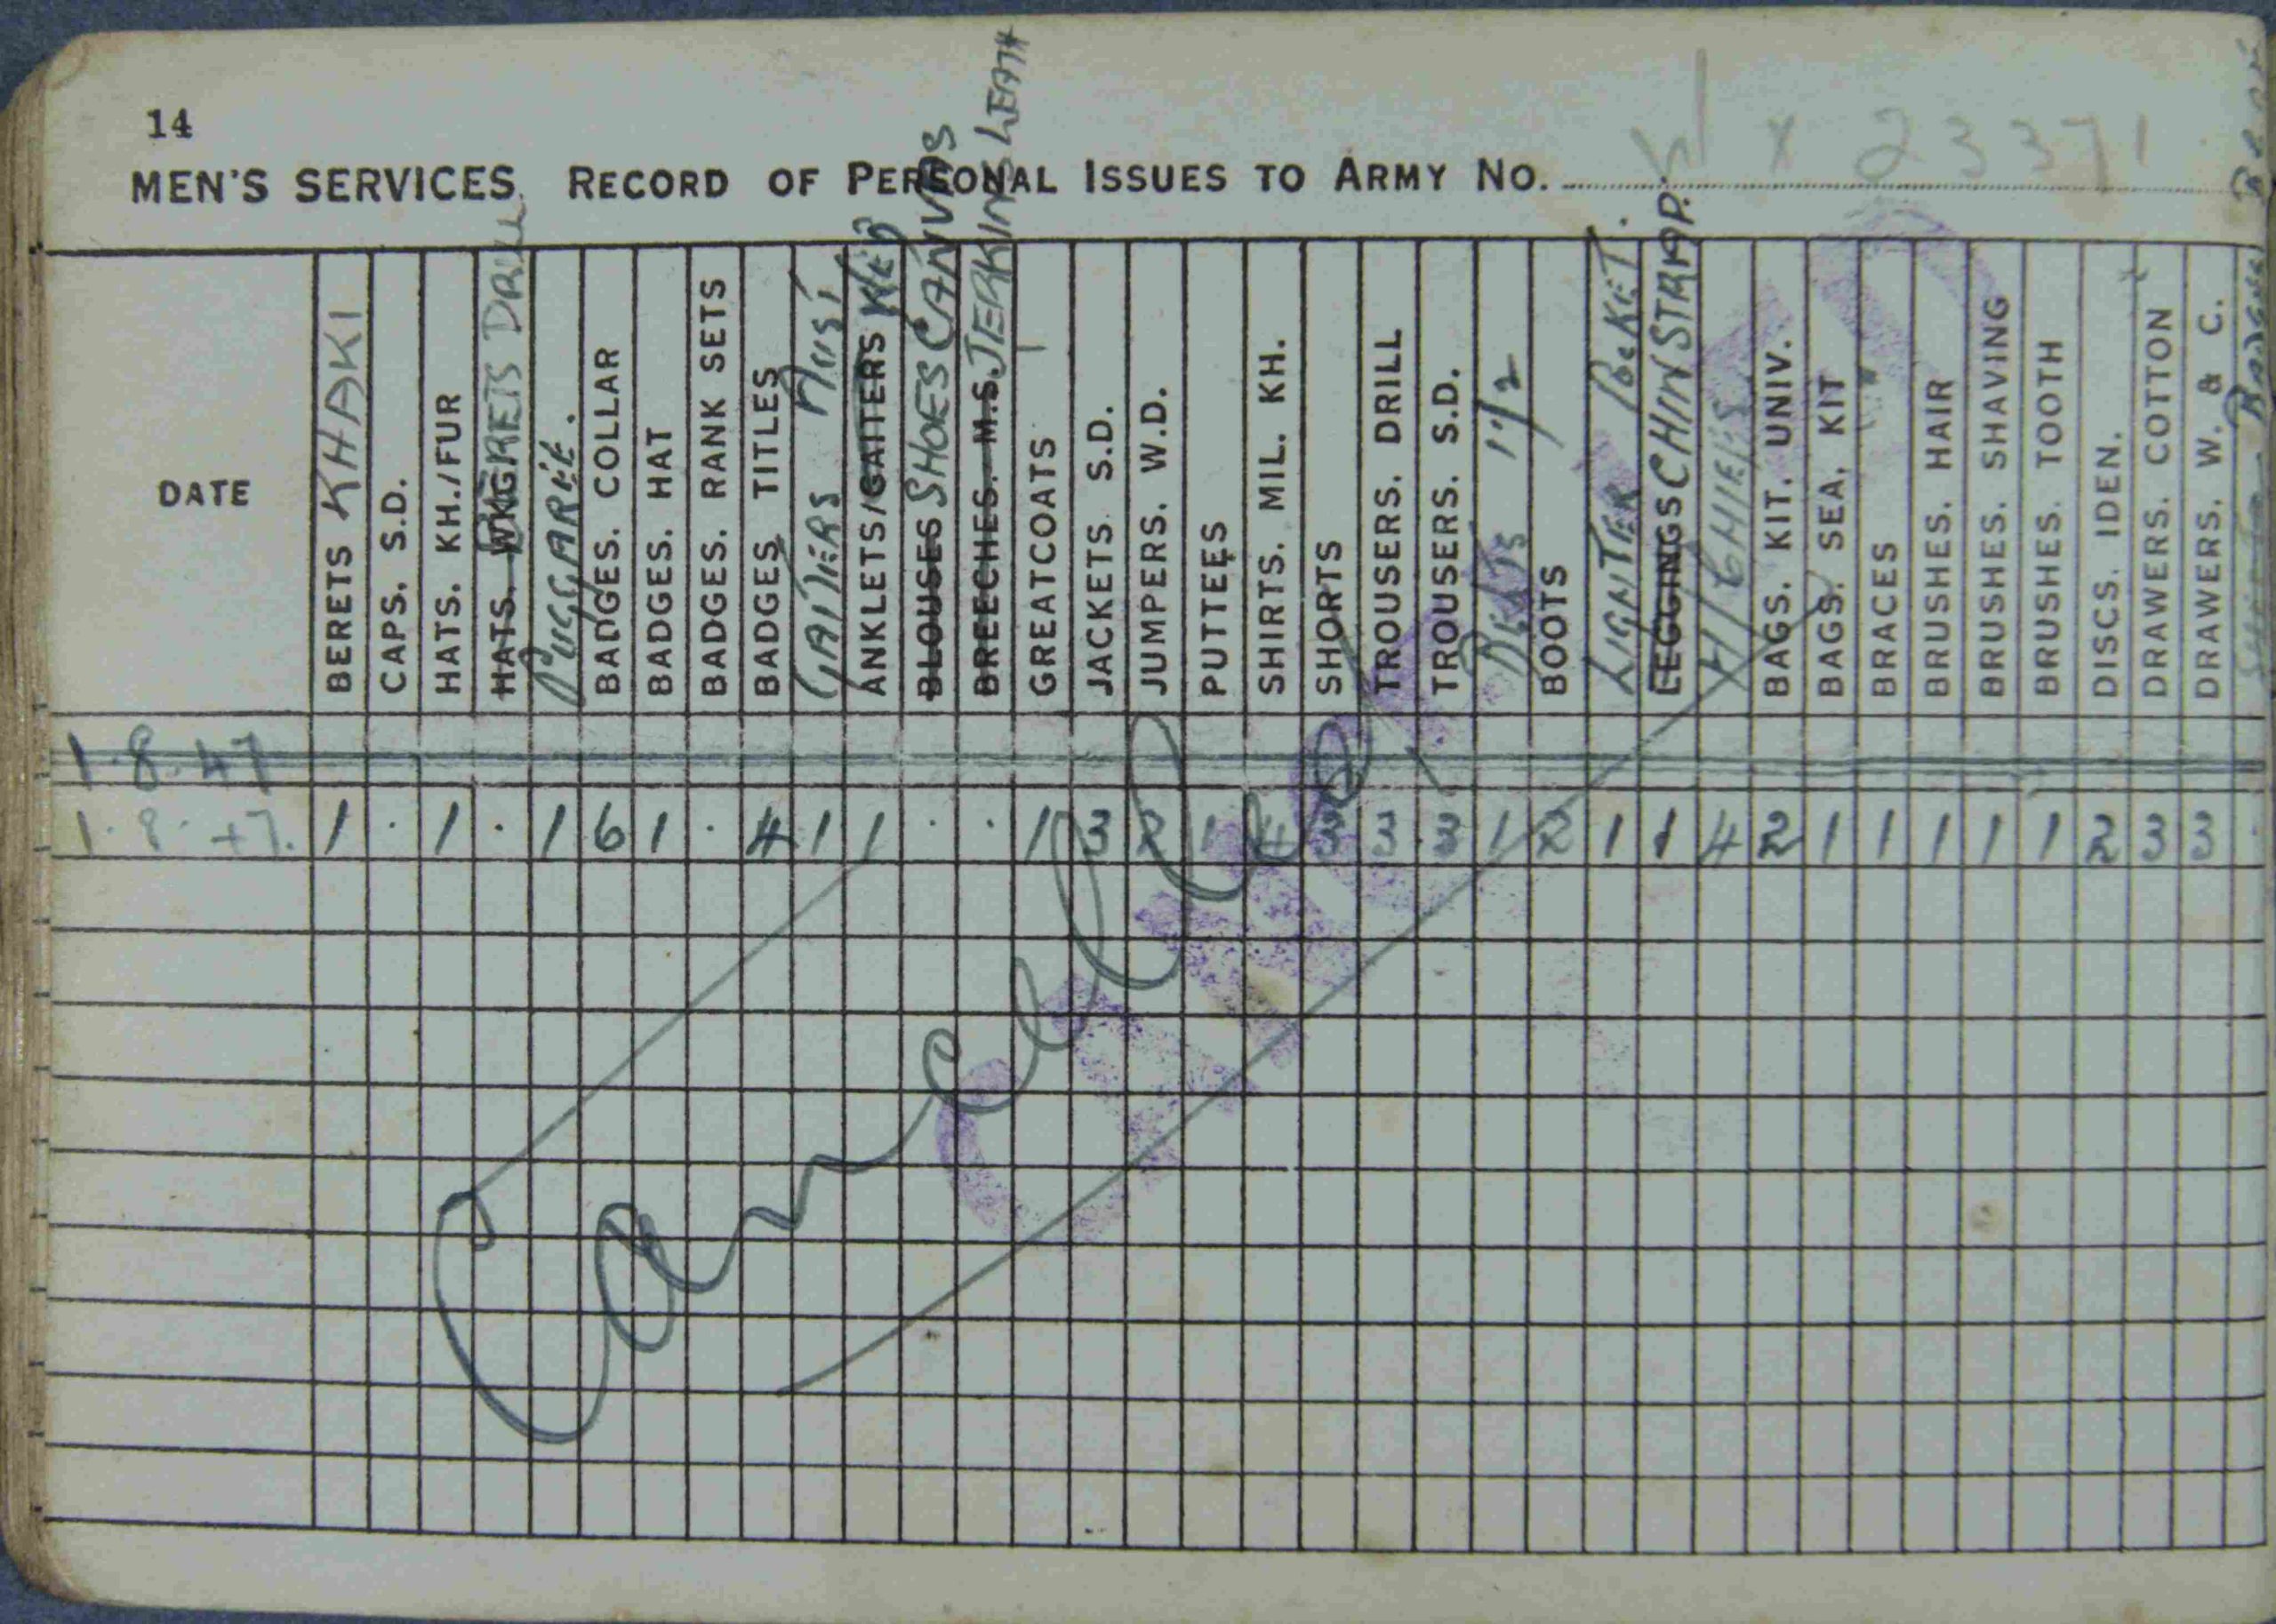 14
MEN'S SERVICES. RECORD OF PERSONAL ISSUES TO ARMY NO. X 23371
DATE
BERETS KHAKI
CAPS. S.D.
HATS. KH./FUR
HATS. WKG BERETS DRILL
PUGGAREE.
BADGES. COLLAR
BADGES. HAT
BADGES. RANK SETS
BADGES. TITLES
GAITERS AUST
ANKLETS/GAITERS WEB
BLOUSES SHOES CANVAS
BREECHES. M.S. JERKINS LEATH
GREATCOATS
JACKETS. S.D.
JUMPERS. W.D.
PUTTEES
SHIRTS. MIL. KH.
SHORTS
TROUSERS. DRILL
TROUSERS. S.D.
BELTS 1½
BOOTS
LIGHTER POCKET.
LEGGINGS CHINSTRAP.
H/CHIEFS
BAGS. KIT. UNIV.
BAGS. SEA. KIT
BRACES
BRUSHES. HAIR
BRUSHES. SHAVING
BRUSHES. TOOTH
DISCS. IDEN.
DRAWERS. COTTON
DRAWERS. W. & C.
1.8.47
1.8.47. 1 . 1 . 1 6 1 . 4 1 1 . . 1 3 2 1 4 3 3 3 1 2 1 1 4 2 1 1 1 1 1 2 3 3
Cancelled